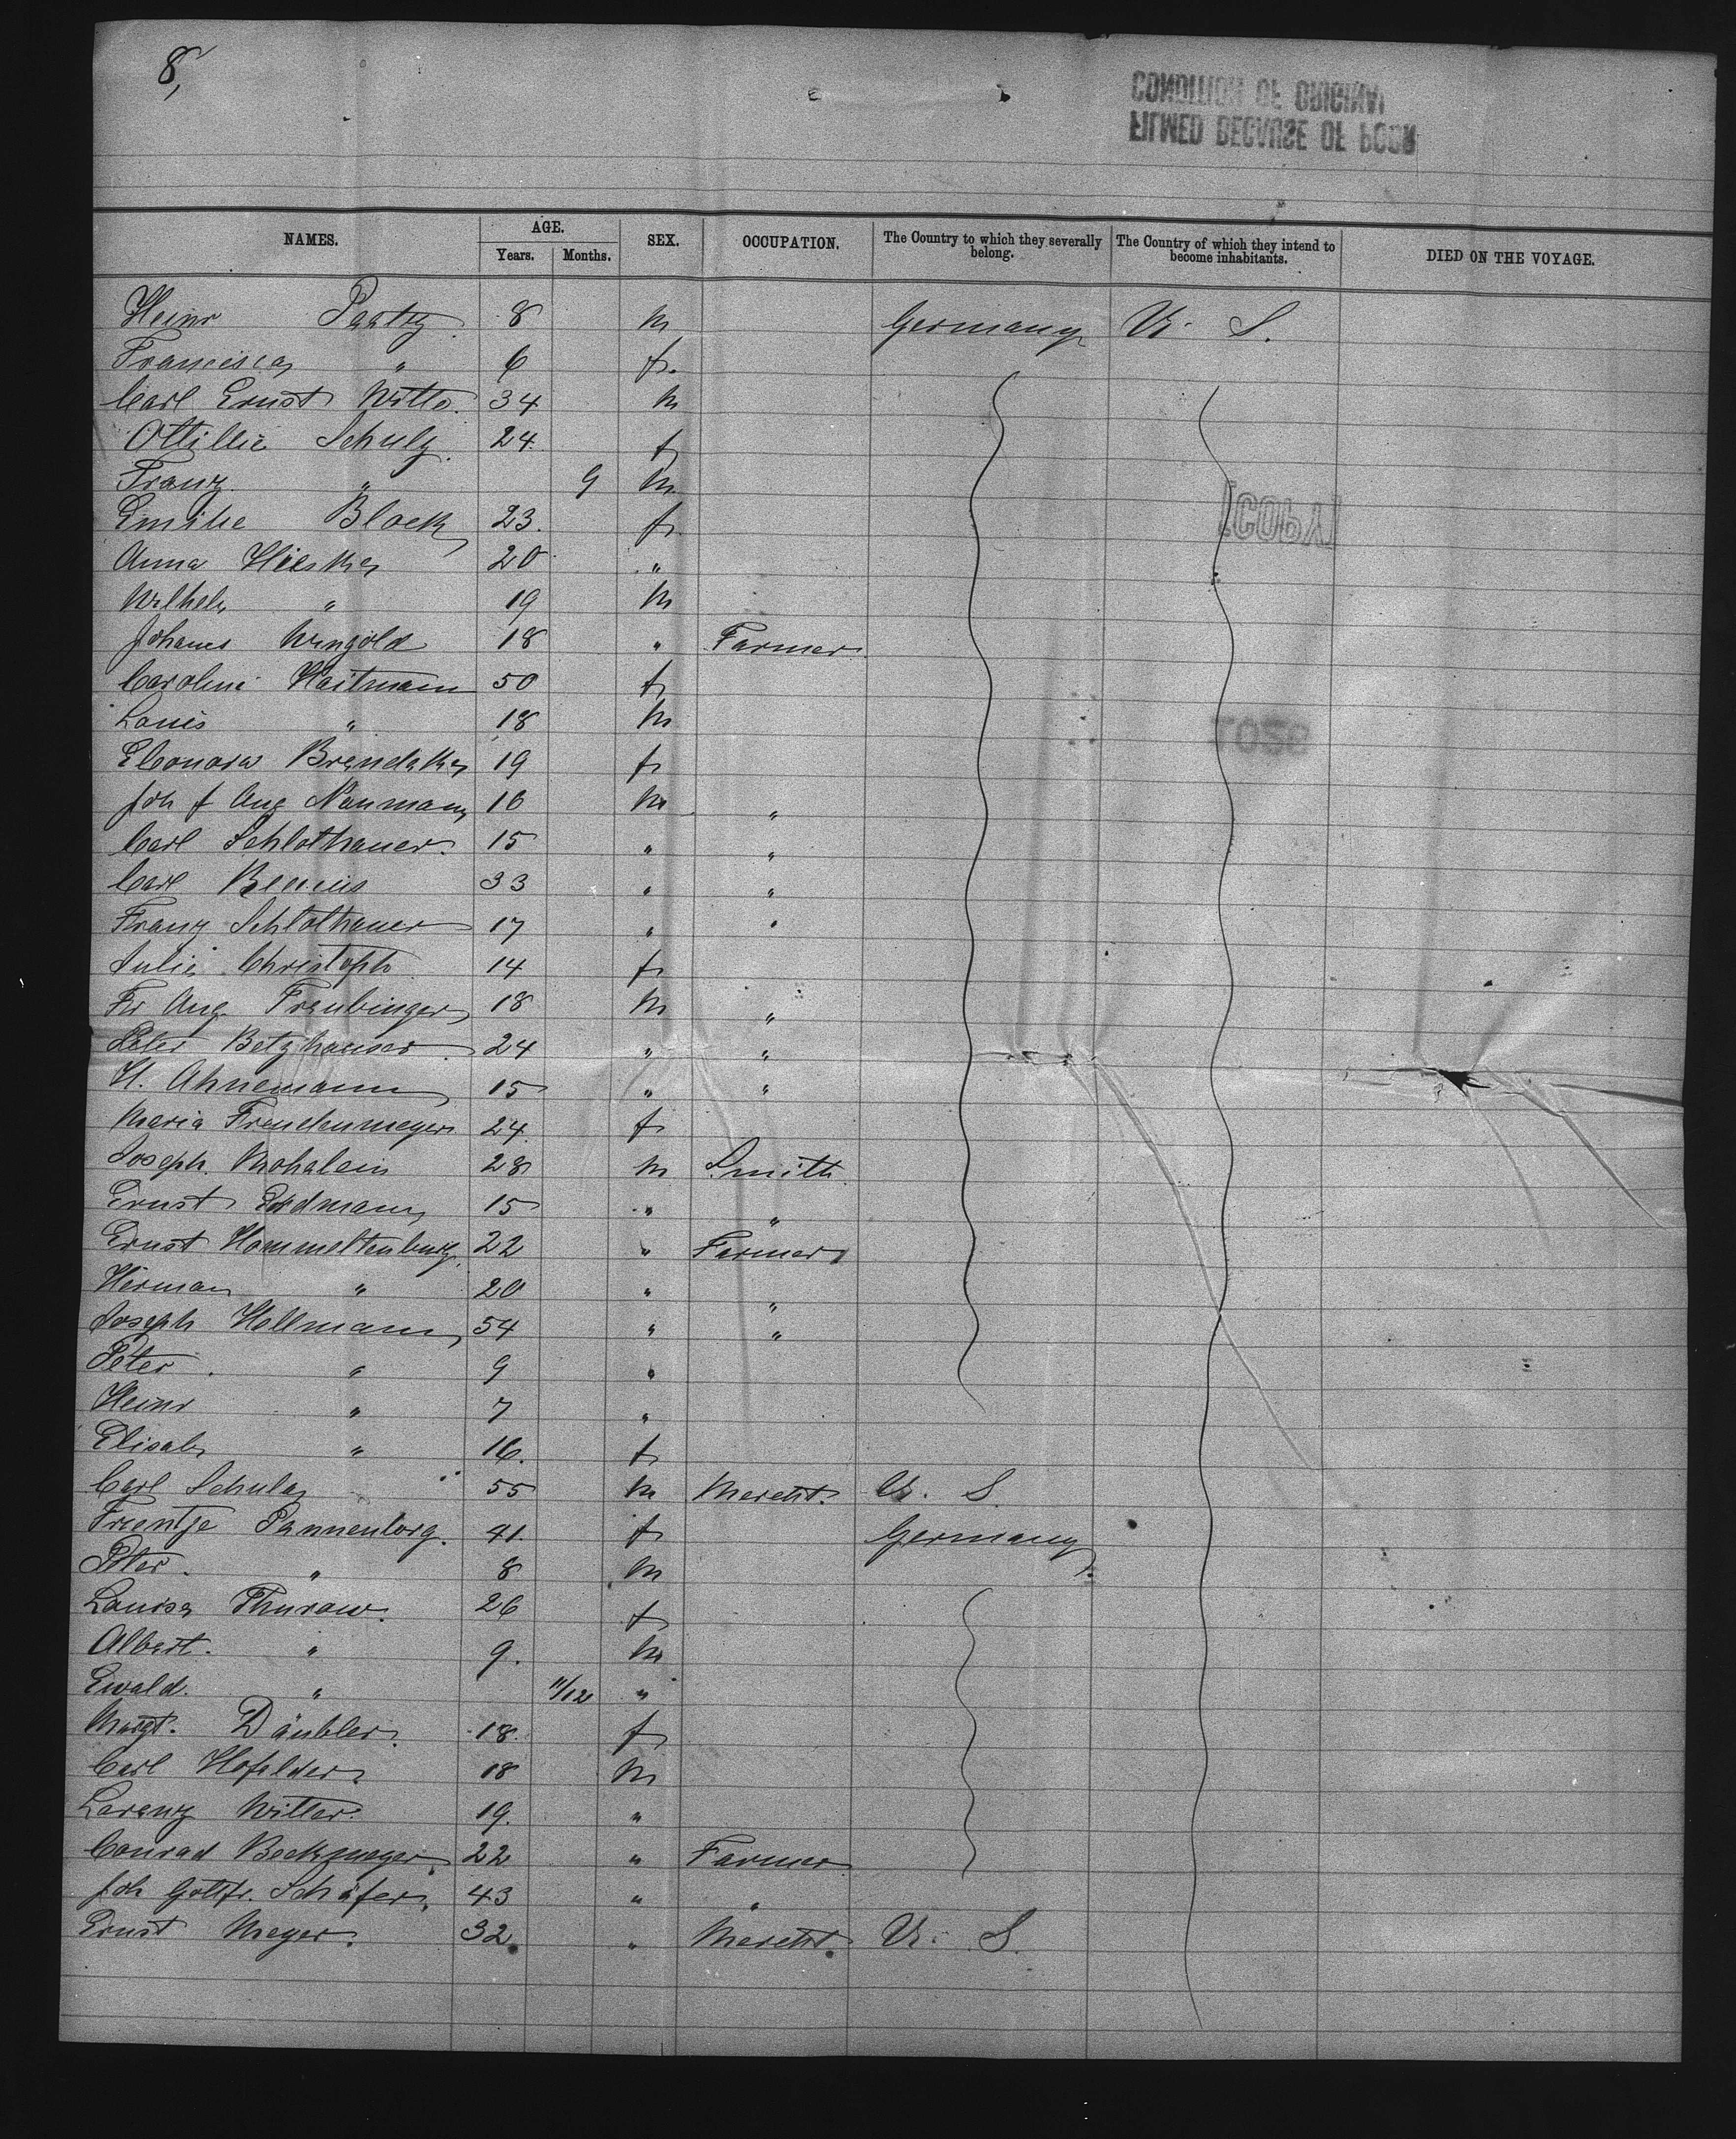 8,
CONDITION OF ORIGINAL
FILMED BECAUSE OF POOR
NAMES. AGE. SEX. OCCUPATION. The Country to which they severally belong. The Country of which they intend to become inhabitants. DIED ON THE VOYAGE.
Years. Months.
Heinr Paatzg 8 m Germany U. S.
Francisca " 6 f.
Carl Ernst Witte. 34 m
Ottillie Schulz. 24. f
Franz " 9 m.
Emilie Block 23. f
Anna 20 "
Wilhelm " 19 m
[COPY]
Johanes Wingold 18 " Farmer
Caroline Hartmann 50 f
Louis " 18 m
Eleonora 19 f
Joh f Aug Naumann 16 m "
Carl Schlothauer. 15 " "
Carl 33 " "
Franz Schlothauer 17 " "
Julie Christoph 14 f
Fr Aug. Freubinger 18 m "
Peter Betzhauser. 24 " "
H. Ahnemann 15 " "
Maria Freudenmeyer. 24. f
Joseph. 28 m Smith.
Ernst Erdmann 15 " "
Ernst Hommeltenberg. 22 " Farmer
Herman " 20 " "
Joseph Hollmann 54 " "
Peter. " 9 "
Heinr " 7 "
Elisab " 16. f
Carl Schulz 55 m Mercht. U. S.
Frientje Pannenborg. 41. f Germany
Peter. " 8 m
Louisa Thurow. 26 f
Albert. " 9. m
Ewald. " 11/12 "
Margt. Däubler. 18. f
Carl Hofelder. 18 m
Lorenz Witter. 19. "
Conrad Beckmeyer. 22 " Farmer
Joh Gottfr. Schäfer. 43 " "
Ernst Meyer. 32. " Mercht. U. S.